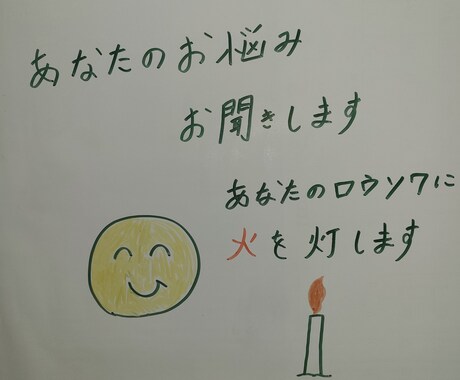 あなたのお悩み
お聞きします
あなたのロウソクに
火を灯します